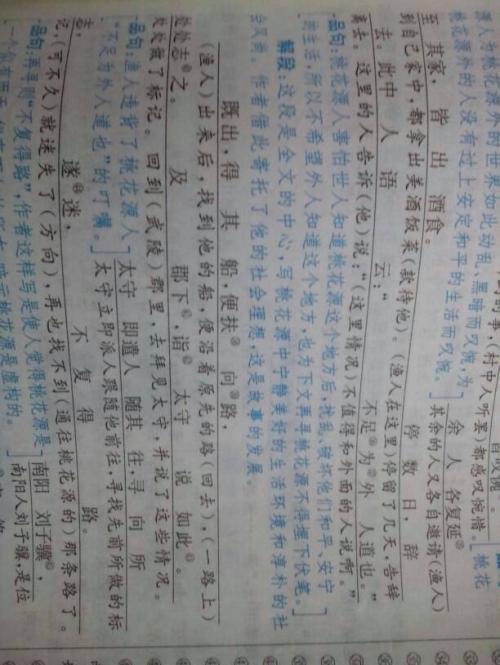 都感叹惋惜。
桃花
源人为桃花源外的世界如此动乱、黑暗而叹惋,为
桃花源外的人没有过上安定和平的生活而叹惋。] 余人各复延
其余的人又各自邀请(渔人)
至其家，皆出酒食。 停数日，辞
到自己家中,都拿出美酒饭菜(款待他)。(渔人在这里)停留了几天,告辞
去。此中人语云：“不足为外人道也。”
离去。这里的人告诉(他)说:“(这里情况)不值得和外面的人说啊。”
[品句:桃花源人害怕世人知道桃花源这个地方后,扰乱、破坏他们和平、安宁
的生活,所以不希望外人知道这个地方,也为下文再寻桃花源不得埋下伏笔。]
解段:这段是全文的中心,写桃花源中宁静美好的生活环境和淳朴的社
会风尚。作者借此寄托了他的社会理想,这是故事的发展。
既出，得其船，便扶向路，
(渔人)出来后,找到他的船,便沿着原先的路(回去),(一路上)
处处志之。 及郡下，诣太守说如此。
处处做了标记。回到(武陵)郡里,去拜见太守,并说了这些情况。
[品句:渔人违背了桃花源人 太守即遣人随其往，寻向所
“不足为外人道也”的叮嘱。] 太守立即派人跟随他前往,寻找先前所做的标
志，遂迷，不复得路。
记,(可不久)就迷失了(方向),再也找不到(通往桃花源的)那条路了。
[品句:再寻则“不复得路”,作者这样写是使人觉得桃花源是 南阳刘子骥，
南阳人刘子骥,是位